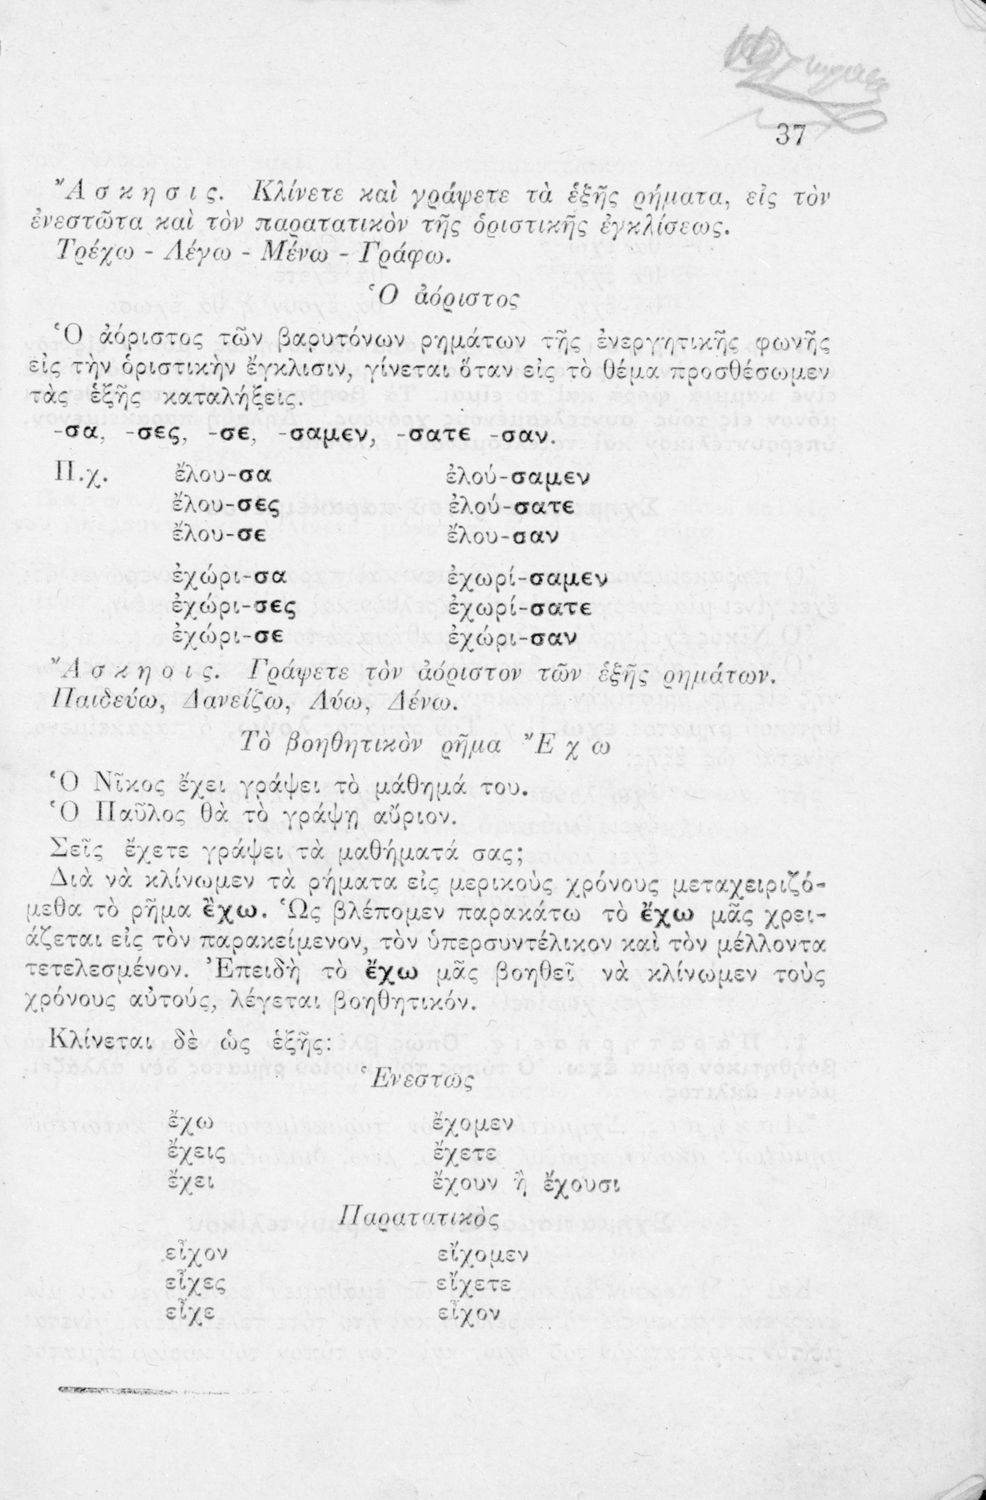 37
Ἄσκησις. Κλίνετε καὶ γράψετε τὰ ἑξῆς ρήματα, εἰς τὸν
ἐνεστῶτα καὶ τὸν παρατατικὸν τῆς ὁριστικῆς ἐγκλίσεως.
Τρέχω - Λέγω - Μένω - Γράφω.
Ὁ ἀόριστος
Ὁ ἀόριστος τῶν βαρυτόνων ρημάτων τῆς ἐνεργητικῆς φωνῆς
εἰς τὴν ὁριστικὴν ἔγκλισιν, γίνεται ὅταν εἰς τὸ θέμα προσθέσωμεν
τὰς ἑξῆς καταλήξεις.
-σα, -σες, -σε, -σαμεν, -σατε -σαν.
Π.χ. ἔλου-σα ἐλού-σαμεν
ἔλου-σες ἐλού-σατε
ἔλου-σε ἔλου-σαν
ἐχώρι-σα ἐχωρί-σαμεν
ἐχώρι-σες ἐχωρί-σατε
ἐχώρι-σε ἐχώρι-σαν
Ἄσκησις. Γράψετε τὸν ἀόριστον τῶν ἑξῆς ρημάτων.
Παιδεύω, Δανείζω, Λύω, Δένω.
Τὸ βοηθητικὸν ρῆμα Ἔχω
Ὁ Νῖκος ἔχει γράψει τὸ μάθημά του.
Ὁ Παῦλος θὰ τὸ γράψῃ αὔριον.
Σεῖς ἔχετε γράψει τὰ μαθήματά σας;
Διὰ νὰ κλίνωμεν τὰ ρήματα εἰς μερικοὺς χρόνους μεταχειριζό-
μεθα τὸ ρῆμα ἔχω. Ὡς βλέπομεν παρακάτω τὸ ἔχω μᾶς χρει-
άζεται εἰς τὸν παρακείμενον, τὸν ὑπερσυντέλικον καὶ τὸν μέλλοντα
τετελεσμένον. Ἐπειδὴ τὸ ἔχω μᾶς βοηθεῖ νὰ κλίνωμεν τοὺς
χρόνους αὐτούς, λέγεται βοηθητικόν.
Κλίνεται δὲ ὡς ἑξῆς:
Ἐνεστὼς
ἔχω ἔχομεν
ἔχεις ἔχετε
ἔχει ἔχουν ἢ ἔχουσι
Παρατατικὸς
εἶχον εἴχομεν
εἶχες εἴχετε
εἶχε εἶχον